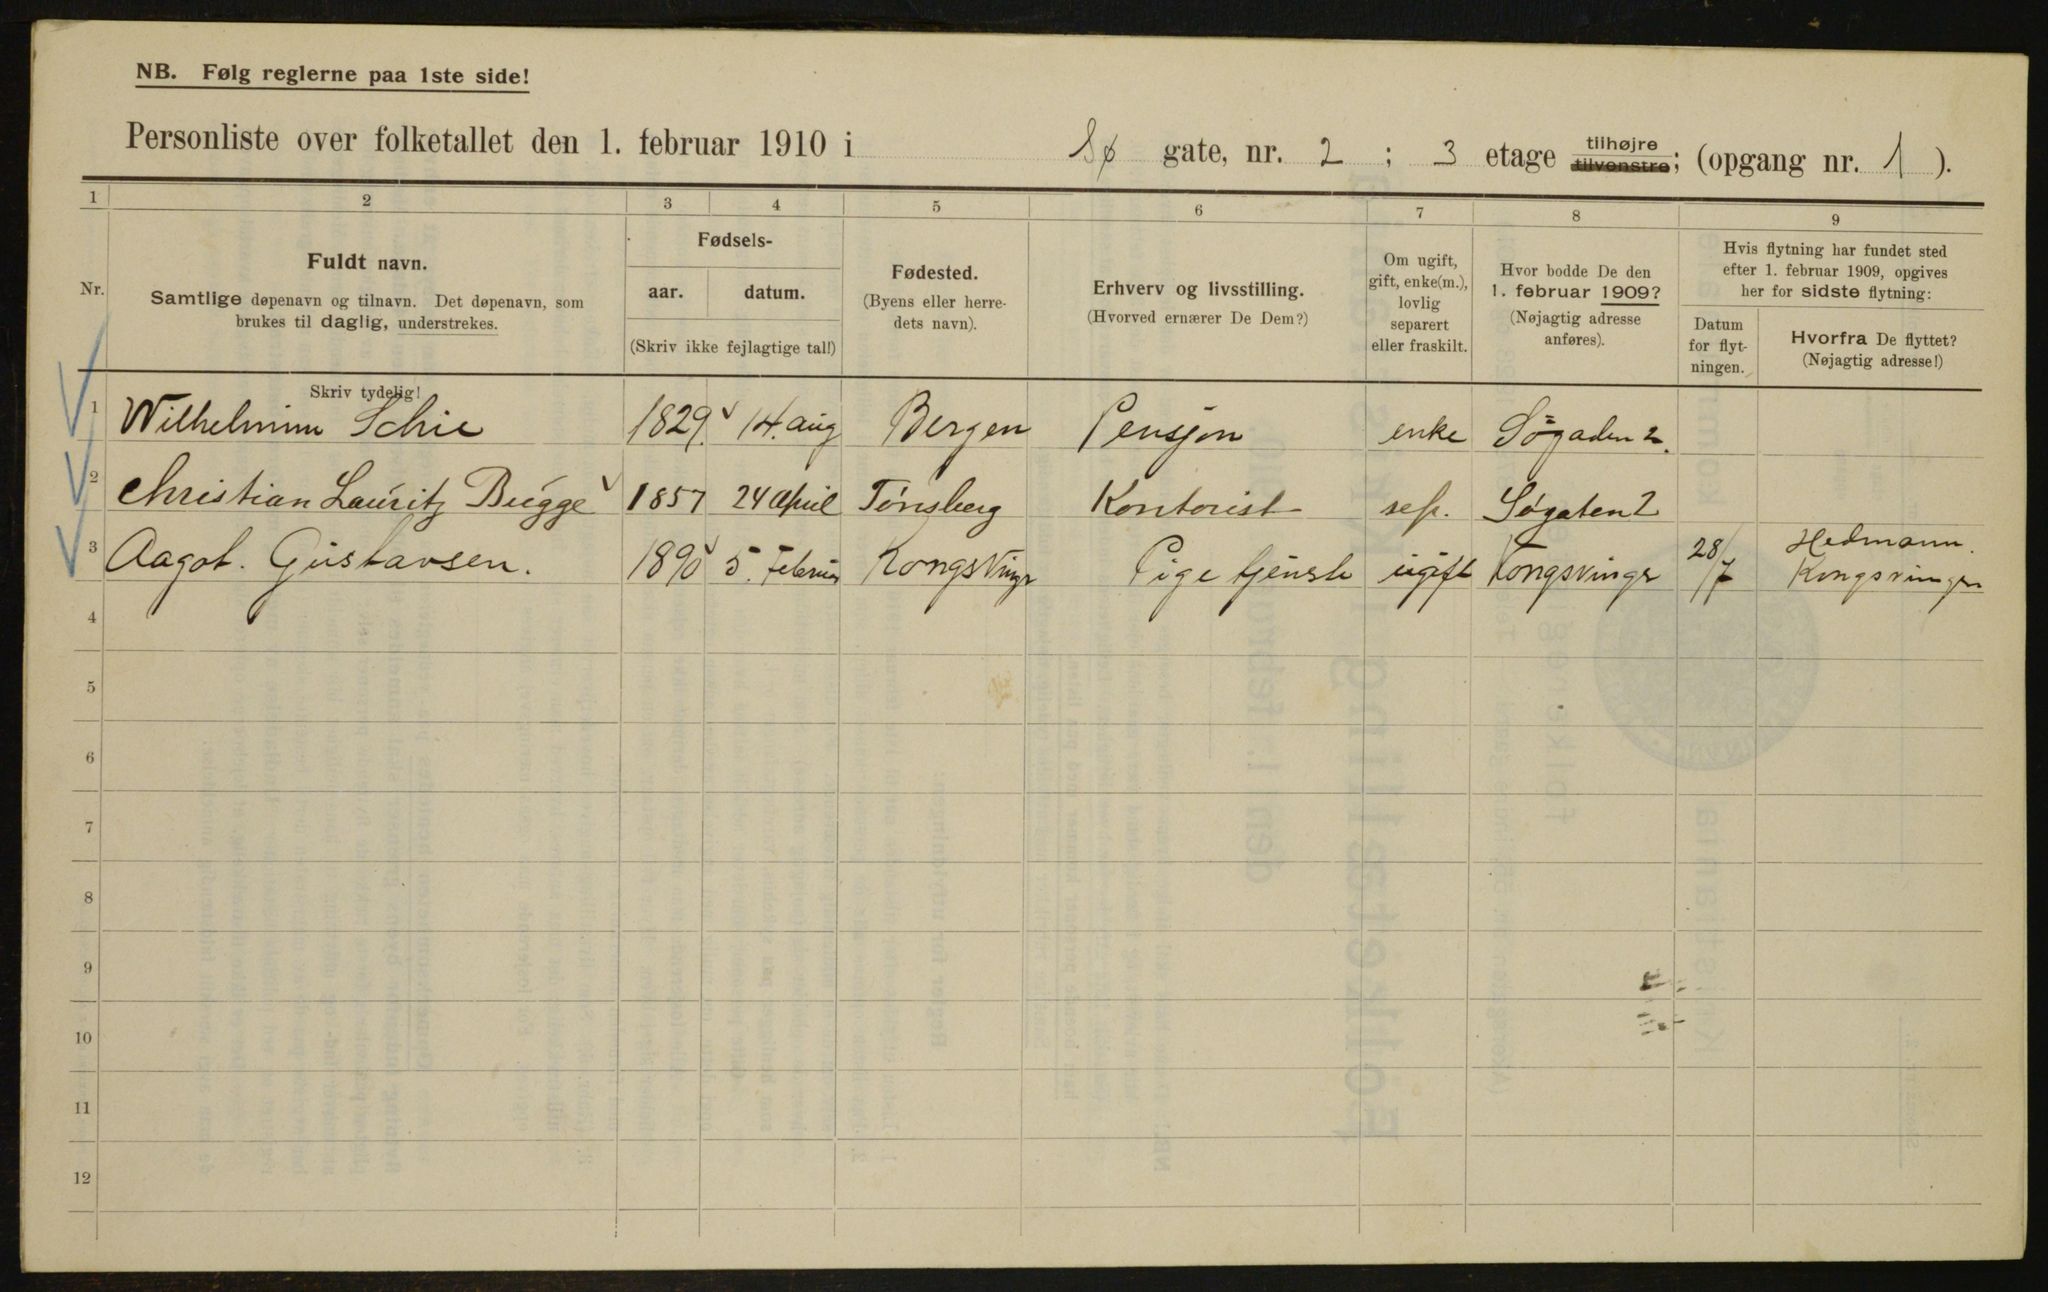 NB. Følg reglerne paa 1ste side!
Personliste over folketallet den 1. februar 1910 i Sø gate, nr. 2 ; 3 etage tilhøjre tilvenstre; (opgang nr. 1 ).
1 2 3 4 5 6 7 8 9
Nr.
Fuldt navn.
Samtlige døpenavn og tilnavn. Det døpenavn, som
brukes til daglig, understrekes.
Skriv tydelig!
Fødsels-
aar. datum.
(Skriv ikke fejlagtige tal!)
Fødested.
(Byens eller herre-
dets navn).
Erhverv og livsstilling.
(Hvorved ernærer De Dem?)
Om ugift,
gift, enke(m.),
lovlig
separert
eller fraskilt.
Hvor bodde De den
1. februar 1909?
(Nøjagtig adresse
anføres).
Hvis flytning har fundet sted
efter 1. februar 1909, opgives
her for sidste flytning:
Datum
for flyt-
ningen.
Hvorfra De flyttet?
(Nøjagtig adresse!)
1 Wilhelmine Schie 1829 14. aug Bergen Pensjon enke Søgaden 2.
2 Christian Lauritz Bugge 1857 24 april Tønsberg Kontorist sep. Søgaten 2
3 Aagot. Gustavsen. 1890 5. Februar Kongsvinger Pige tjeneste ugift Kongsvinger 28/7 Hedmann. Kongsvinger
4
5
6
7
8
9
10
11
12